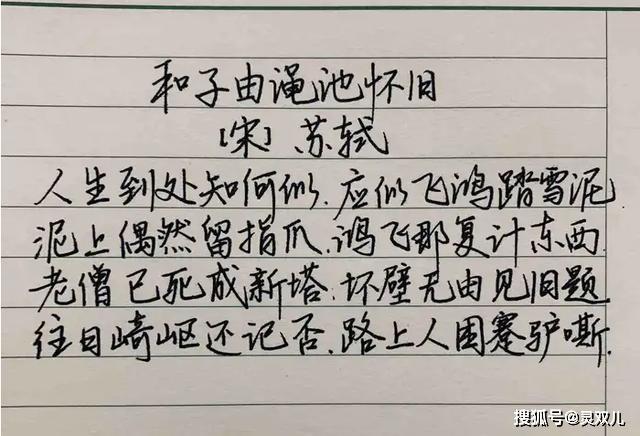 和子由渑池怀旧
[宋] 苏轼
人生到处知何似.应似飞鸿踏雪泥
泥上偶然留指爪.鸿飞那复计东西.
老僧已死成新塔.坏壁无由见旧题
往日崎岖还记否.路上人困蹇驴嘶.
搜狐号@灵双儿